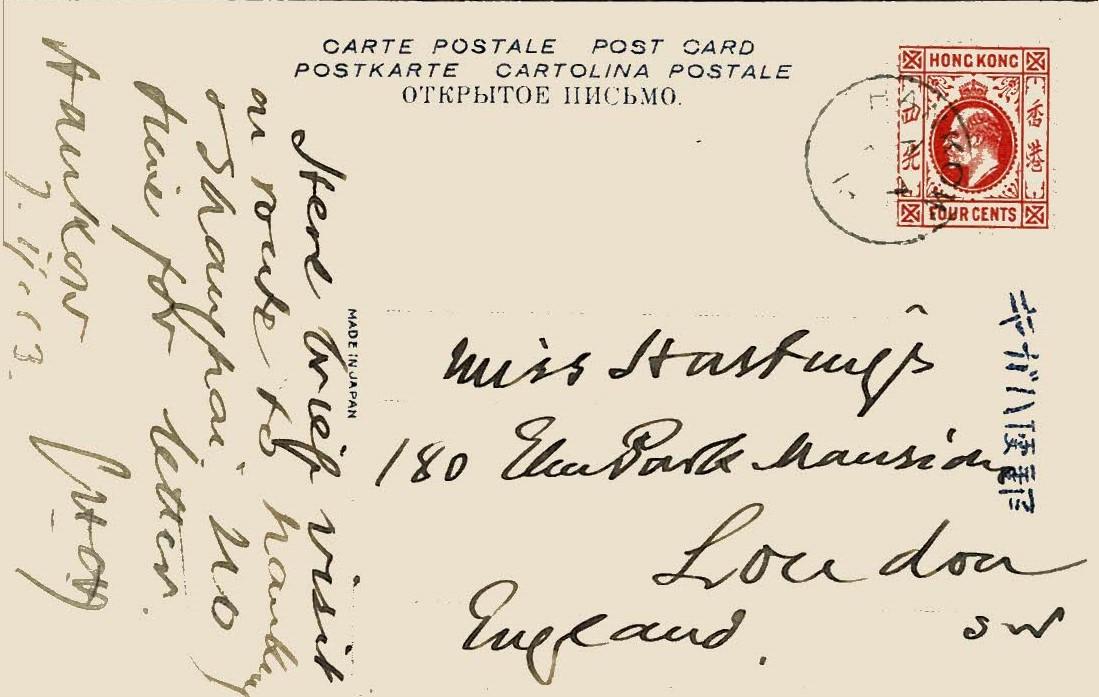 CARTE POSTALE POST CARD
POSTKARTE CARTOLINA POSTALE
ОТКРЫТОЕ ПИСЬМО.
HONG KONG
香港
FOUR CENTS
Here brief visit
en route to Nanking
& Shanghai. No
time for letter.
Hankow
MADE IN JAPAN
Miss Hastings
180 Elm Park Mansions
London
SW
England.
郵便ハガキ